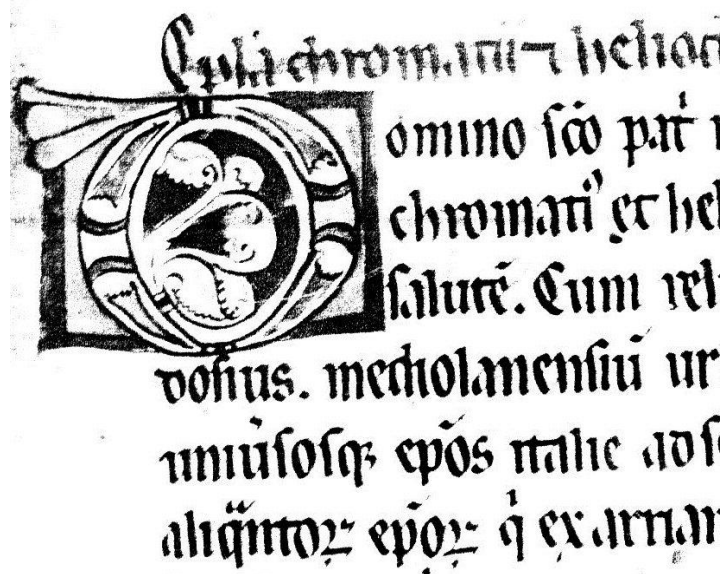 Epła chromatii ⁊ heliod
Domino sc̄o pat̄
chromati᷒ et hel
salutē. Cum rel
dosius. mediolanensiū ur
uniu᷒sosq; ep̄os italie ad
aliq̄ntoꝝ ep̄oꝝ q̍ ex arrian